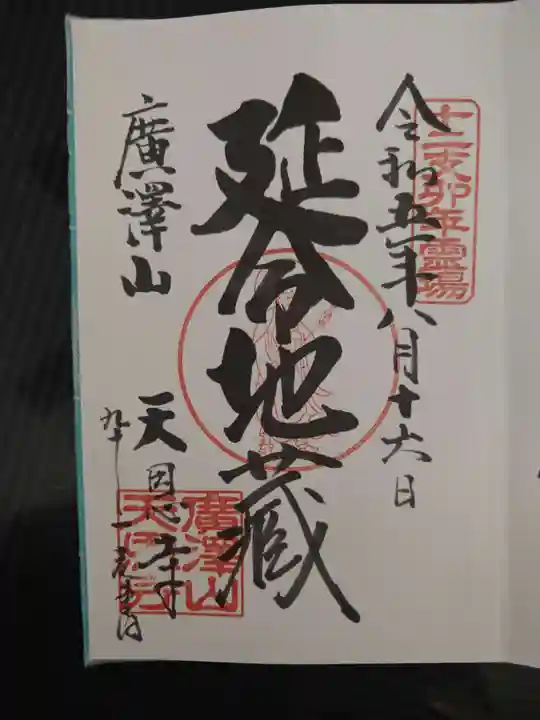 十二支卯年霊場
令和五年八月十六日
延命地蔵
廣澤山
天恩寺
廣澤山
天恩寺